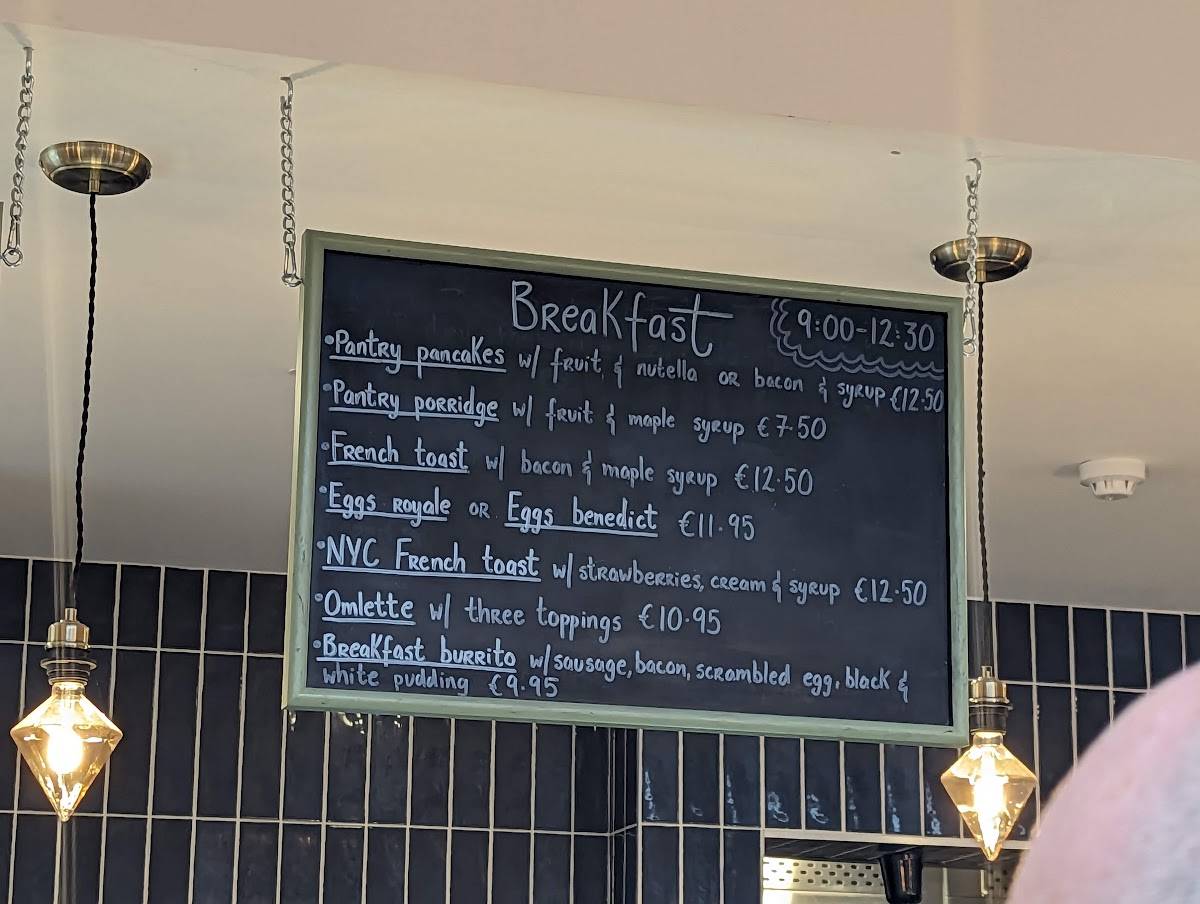 Breakfast 9:00-12:30
•Pantry pancakes w/ fruit & nutella or bacon & syrup €12.50
•Pantry porridge w/ fruit & maple syrup €7.50
•French toast w/ bacon & maple syrup €12.50
•Eggs royale or Eggs benedict €11.95
•NYC French toast w/ strawberries, cream & syrup €12.50
•Omlette w/ three toppings €10.95
•Breakfast burrito w/ sausage, bacon, scrambled egg, black &
white pudding €9.95